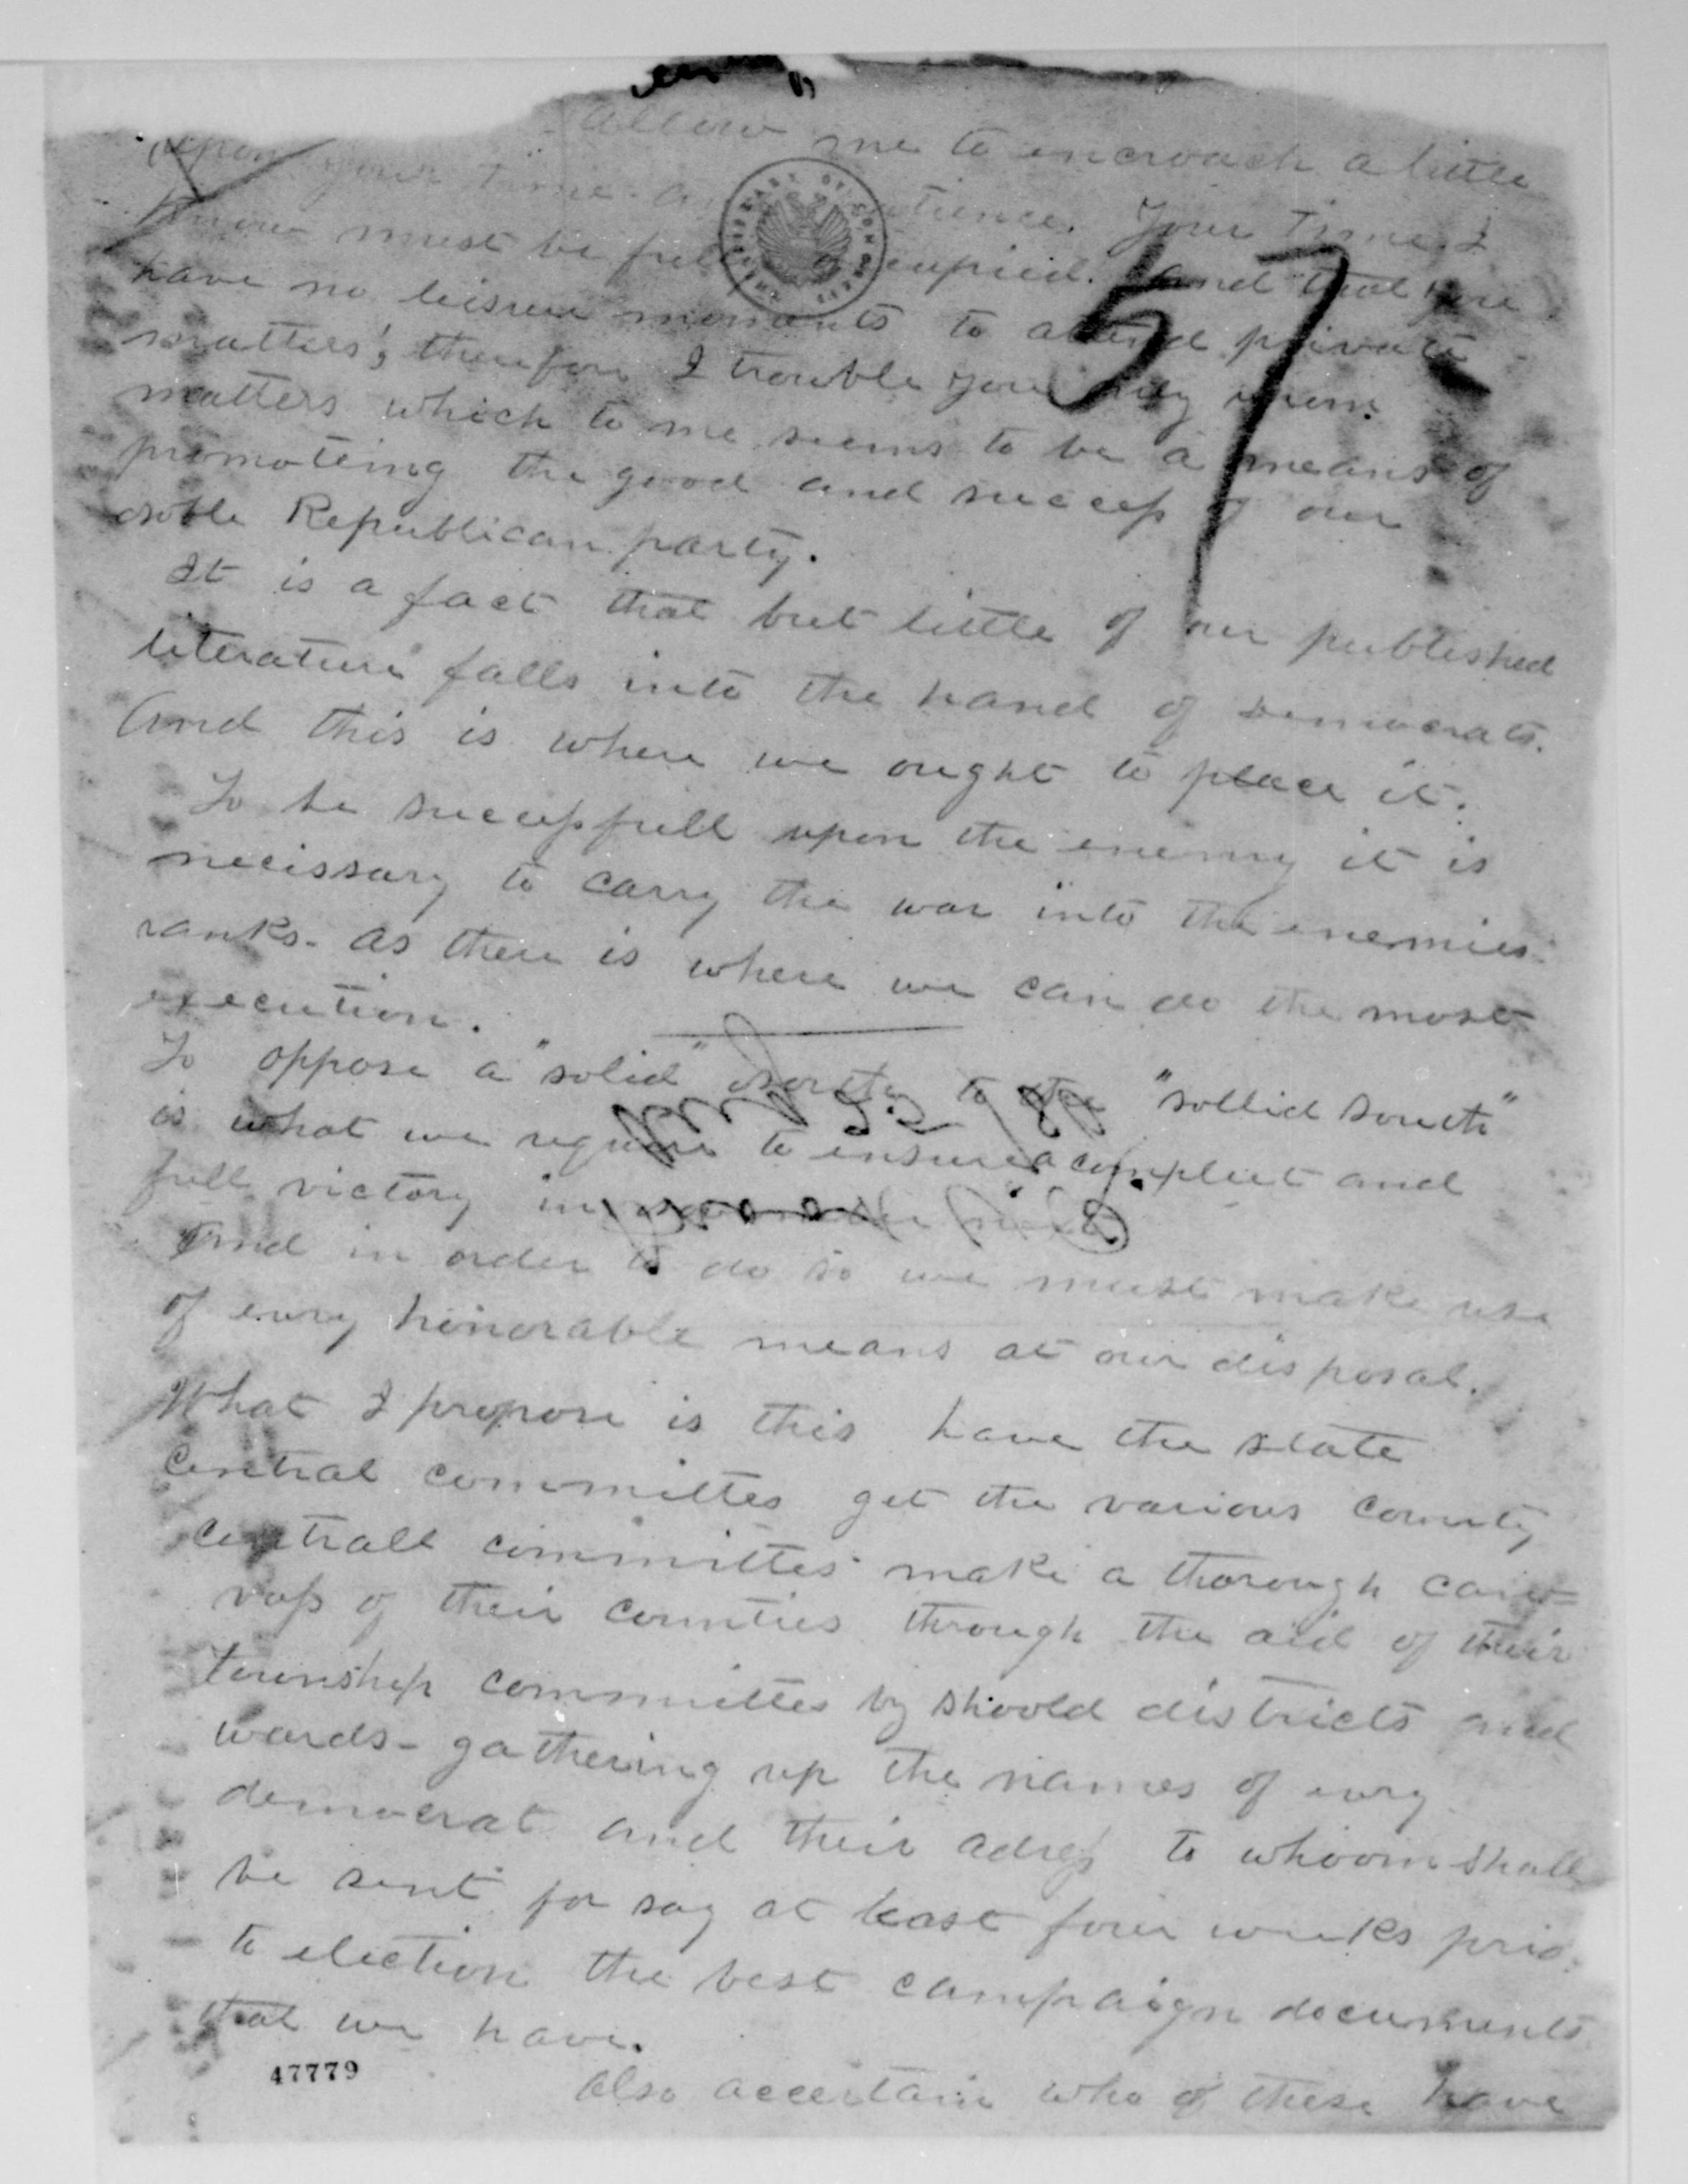 Allow me to encroach a little
upon your time
know must be occupied. And that you
have no leisure moments to attend private
matters; therefore I trouble you only upon
matters which to me seems to be a means of
promoteing the good and success of our
noble Republican party.
It is a fact that but little of our published
literature falls into the hand of Democrats.
And this is where we ought to place it.
To be successfull upon the enemy it is
necissary to carry the war into the enemies
ranks. as there is where we can do the most
execution.
To oppose a "solid" North to the "sollid South"
is what we require to ensure a compleet and
full victory in
And in order to do so we must make use
of evry honorable means at our disposal.
What I propose is this have the state
Central committes get the various county
centrall committes make a thorough can=
vass of their counties through the aid of their
township committes by shoold districts and
wards - gathering up the names of evry
democrat and their adress to whoom shall
be sent for say at least four weeks prio
to election the best campaign documents
that we have.
also accertain who of these have
57
47779